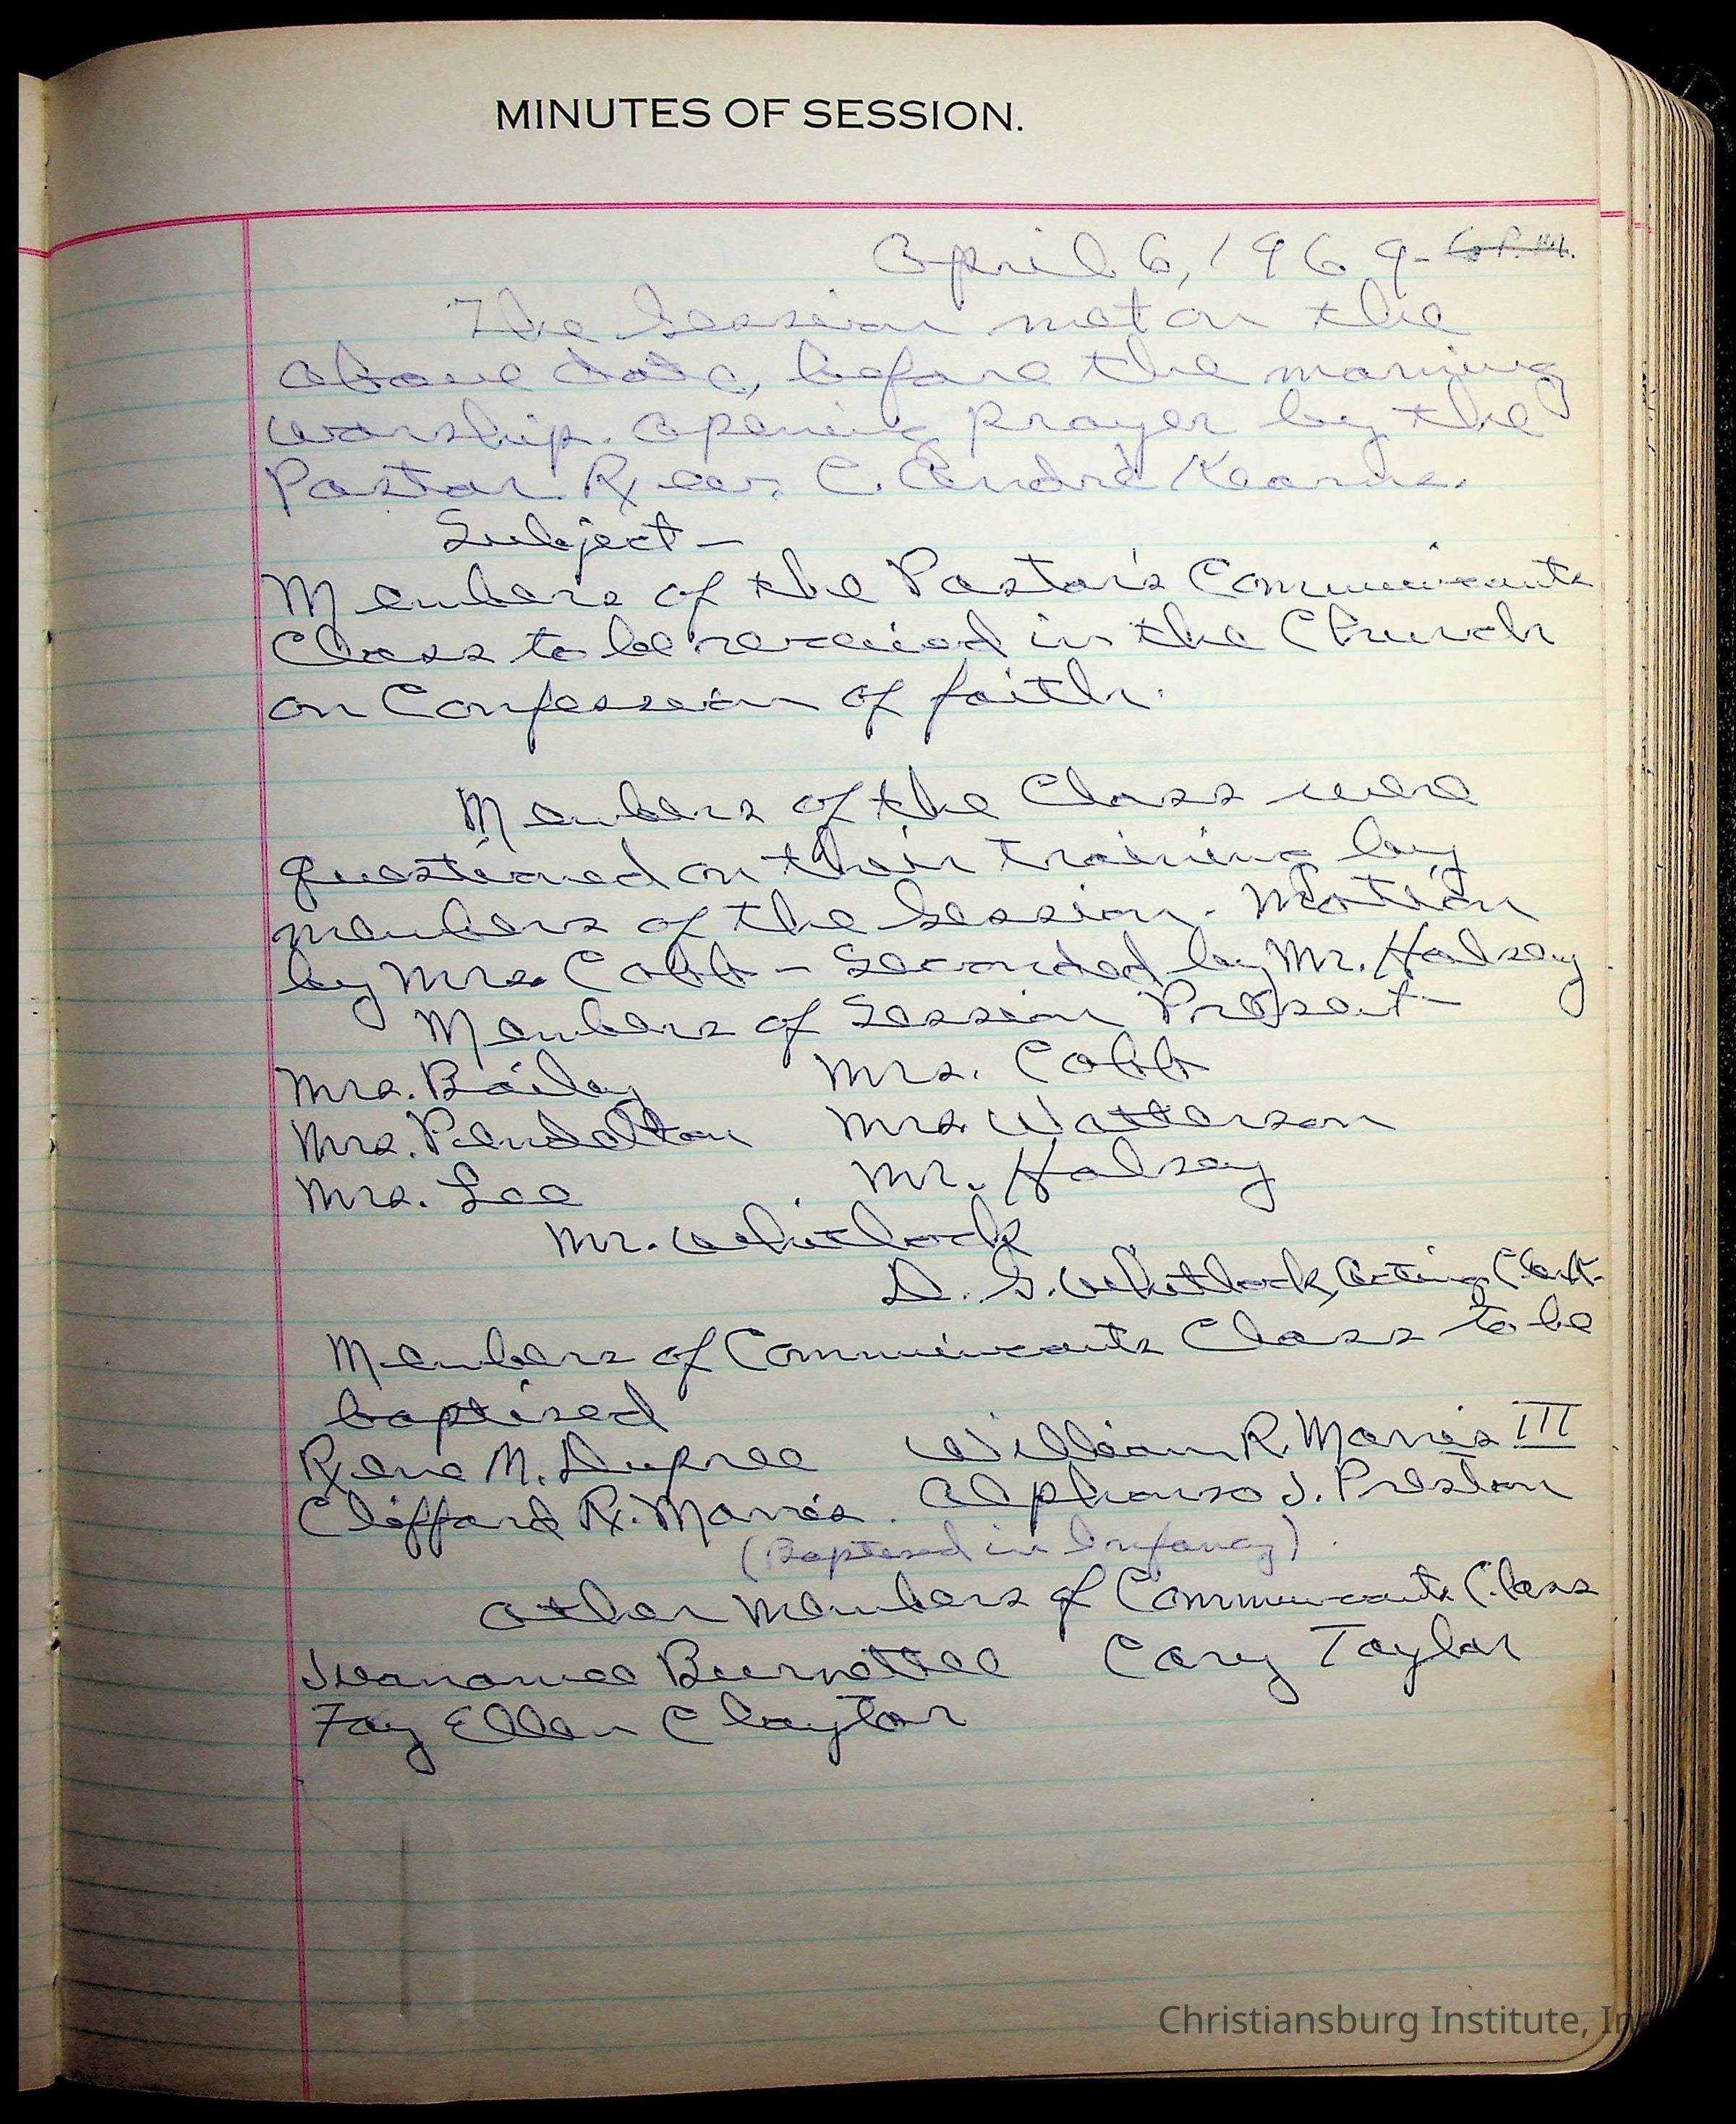 MINUTES OF SESSION.
April 6, 1969-
The Session met on the
above date, before the morning
worship. Opening Prayer by the
Pastor Rev. C. André Kearns.
Subject —
Members of the Pastor's Communicants
Class to be received in the Church
on Confession of faith.
Members of the Class were
questioned on their training by
members of the Session. Motion
by Mrs. Cobb - Seconded by Mr. Halsey
Members of Session Present -
Mrs. Bailey Mrs. Cobb
Mrs. Pendelton Mrs. Watterson
Mrs. Lee Mr. Halsey
Mr. Whitlock
D. G. Whitlock, Acting Clerk.
Members of Communicants Class to be
baptised
Rene M. Dupree William R. Morris III
Clifford R. Morris. Alphonso J. Preston
(Baptised in Infancy).
Other Members of Communicants Class
Burnettee Cary Taylor
Fay Ellen Clayton
Christiansburg Institute, In